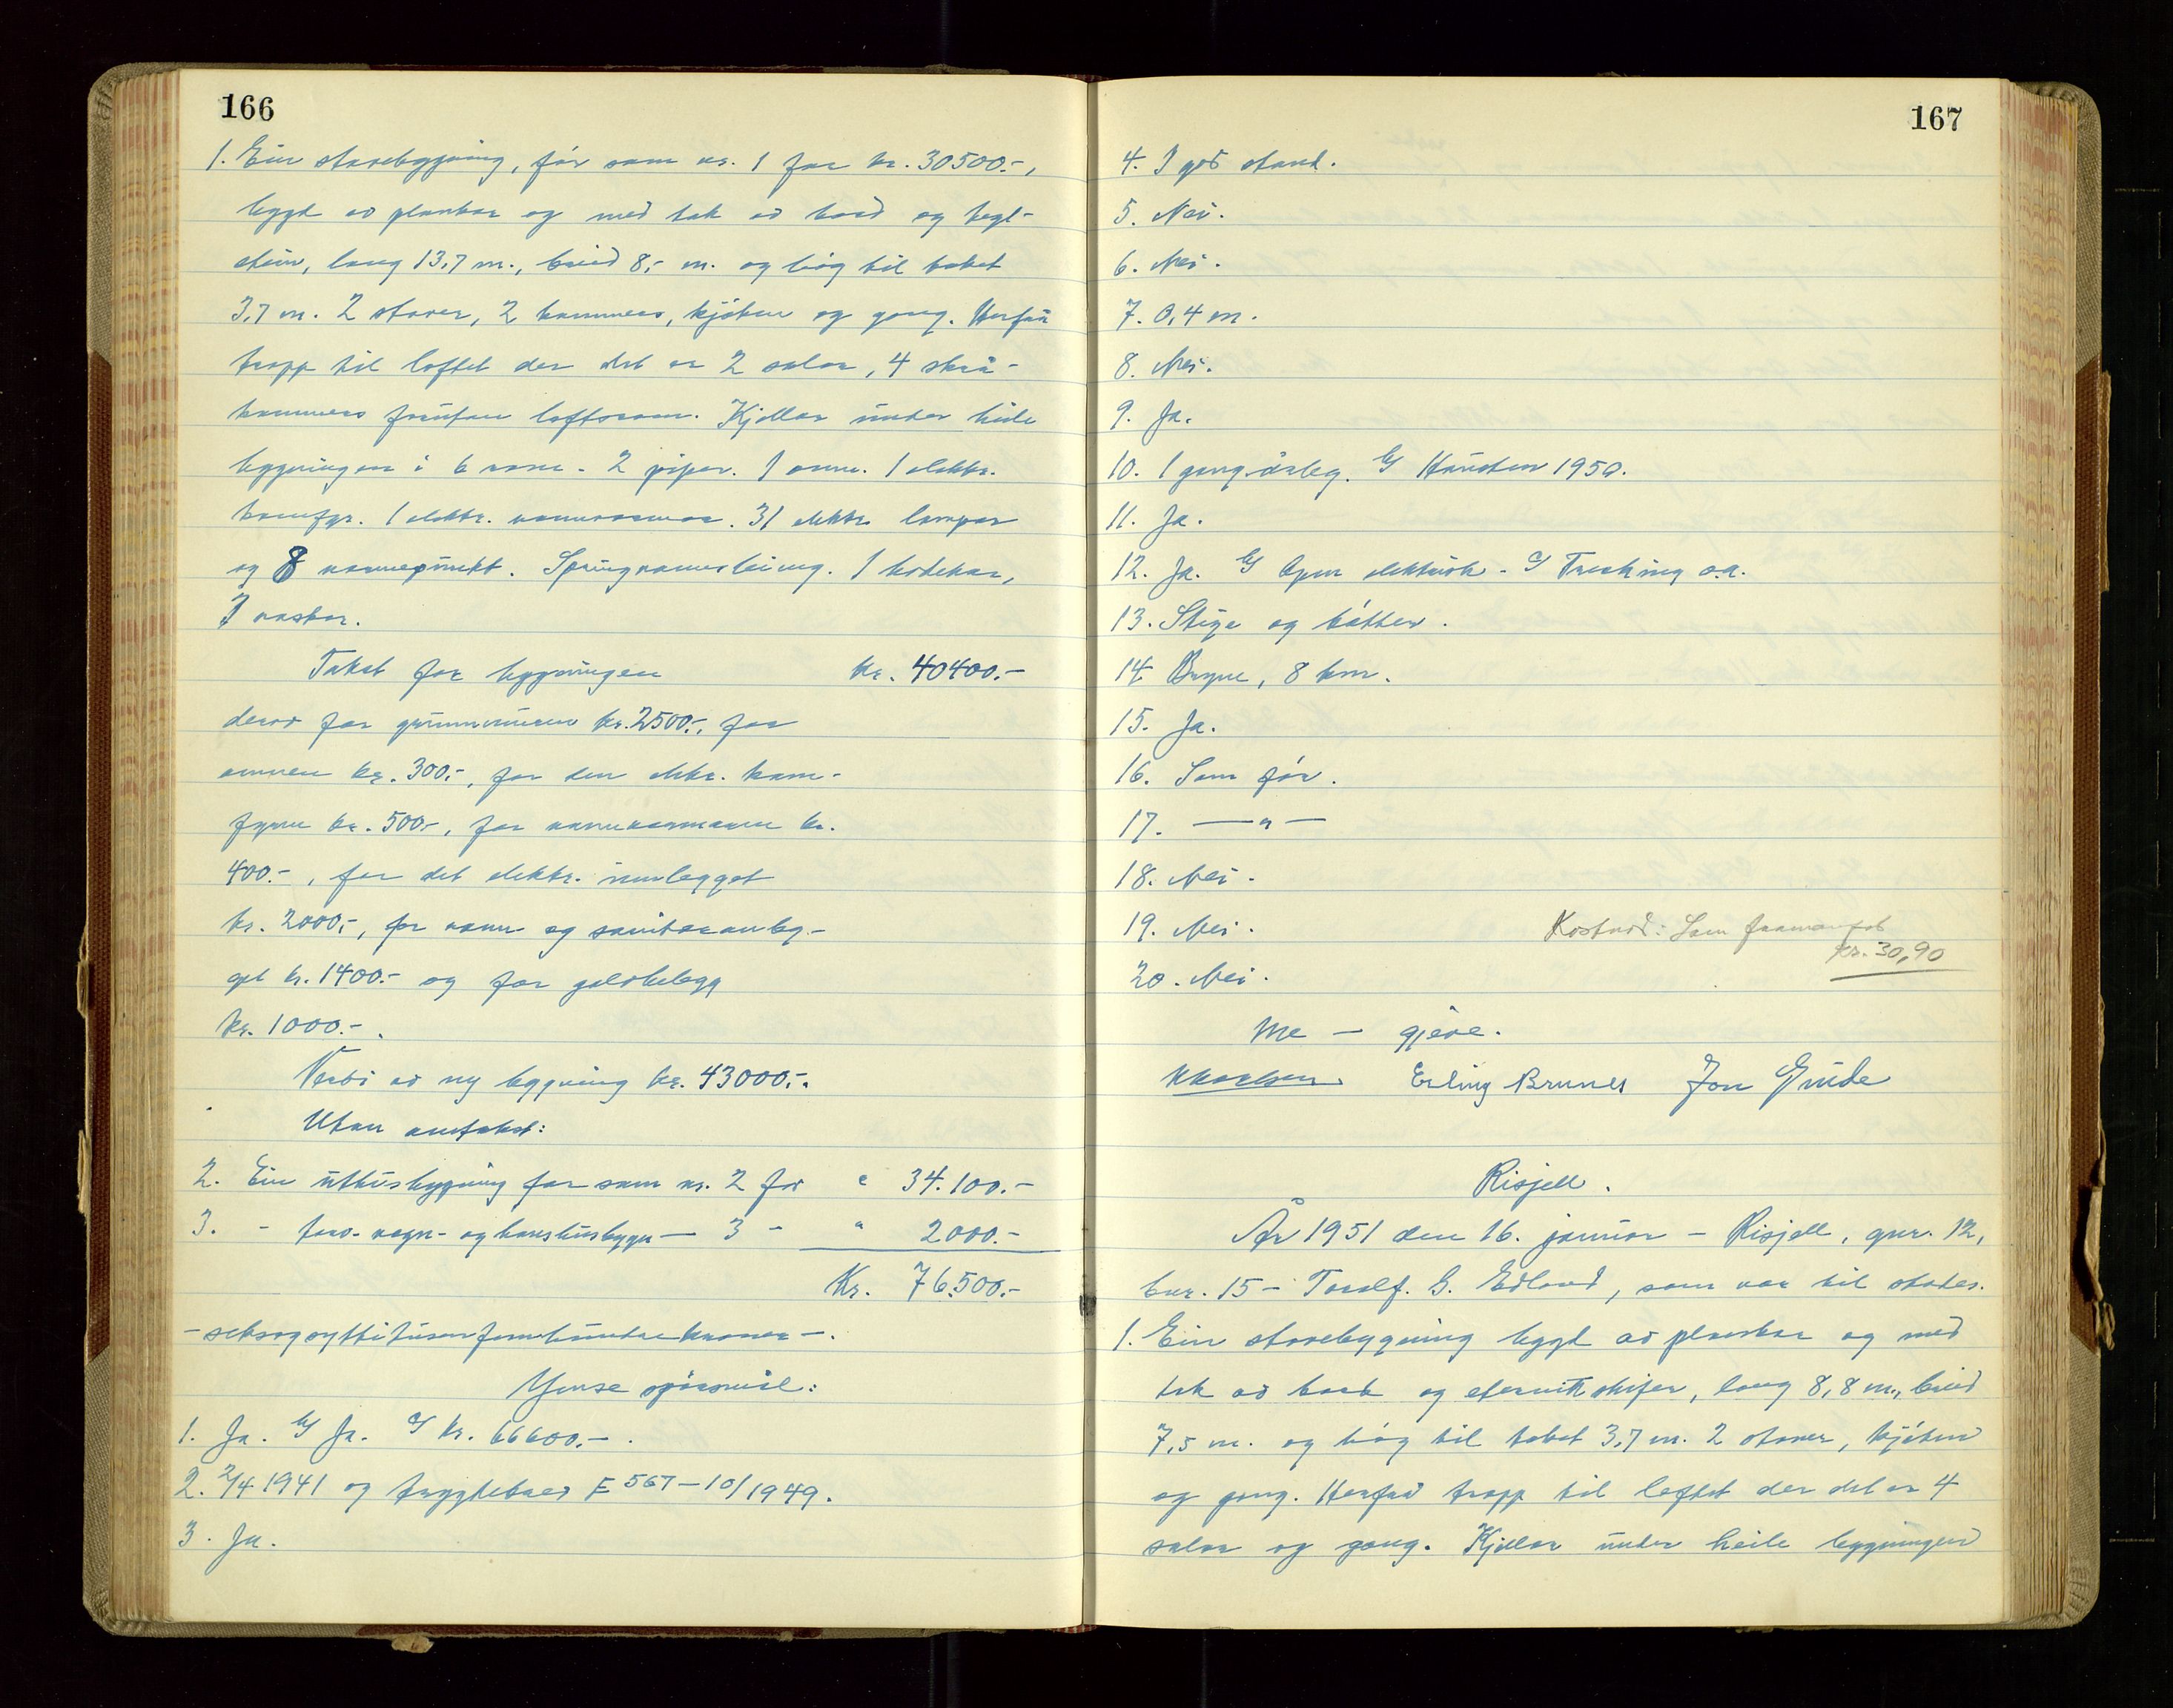 166
1. Ein stovebygning, før som nr. 1 for kr. 30500.-,
bygd av plankar og med tak av bord og tegl-
stein, lang 13,7 m., breid 8,- m. og høg til taket
3,7 m. 2 stover, 2 kammers, kjøken og gang. Herfrå
trapp til loftet der det er 2 salar, 4 skrå-
kammers forutan loftsrom. Kjellar under heile
bygningen i 6 rom. 2 piper. 1 omn. 1 elektr.
komfyr. 1 elektr. vannvarmar. 31 elektr. lampar
og 8 varmepunkt. Springvannsleiing. 1 badekar,
3 vaskar.
Takst for bygningen kr. 40400.-
derav for grunnmuren kr. 2500.-, for
omnen kr. 300.-, for den elektr. kom-
fyren kr. 500.-, for vannvarmaren kr.
400.-, for det elektr. innlegget
kr. 2000.-, for vann og sanitæranleg-
get kr. 1400.- og for golvbelegg
kr. 1000.-.
Verdi av ny bygning kr. 43000.-.
Utan omtakst:
2. Ein uthusbygning før som nr. 2 for " 34.100.-
3. - torv- vogn- og hønshusbygn — 3 - " 2000.-
Kr. 76.500.-
- seksogsyttitusenfemhundrekroner -.
Ymse spørsmål:
1. Ja. b) Ja. c) Kr. 66600.-.
2. 2/4 1941 og tryggdebrev E 567 - 10/1949.
3. Ja.
167
4. I god stand.
5. Nei.
6. Nei.
7. 0,4 m.
8. Nei.
9. Ja.
10. 1 gang årleg. b) Hausten 1950.
11. Ja.
12. Ja. b) Open elektrisk. c) Tresking o.a.
13. Stige og bøtter.
14. Bryne, 8 km.
15. Ja.
16. Som før.
17. — " —
18. Nei.
19. Nei.
20. Nei.
Kostnad: Som framanfor
Kr. 30,90
Me — gjeve.
Erling Brunes Jon Grude
Risjell.
År 1951 den 16. januar - Risjell, gnr. 12,
bnr. 15 - Toralf. G. Edland, som var til stades.
1. Ein stovebygning bygd av plankar og med
tak av bord og eternitskifer, lang 8,8 m., breid
7,5 m. og høg til taket 3,7 m. 2 stover, kjøken
og gang. Herfrå trapp til loftet der det er 4
salar og gang. Kjellar under heile bygningen